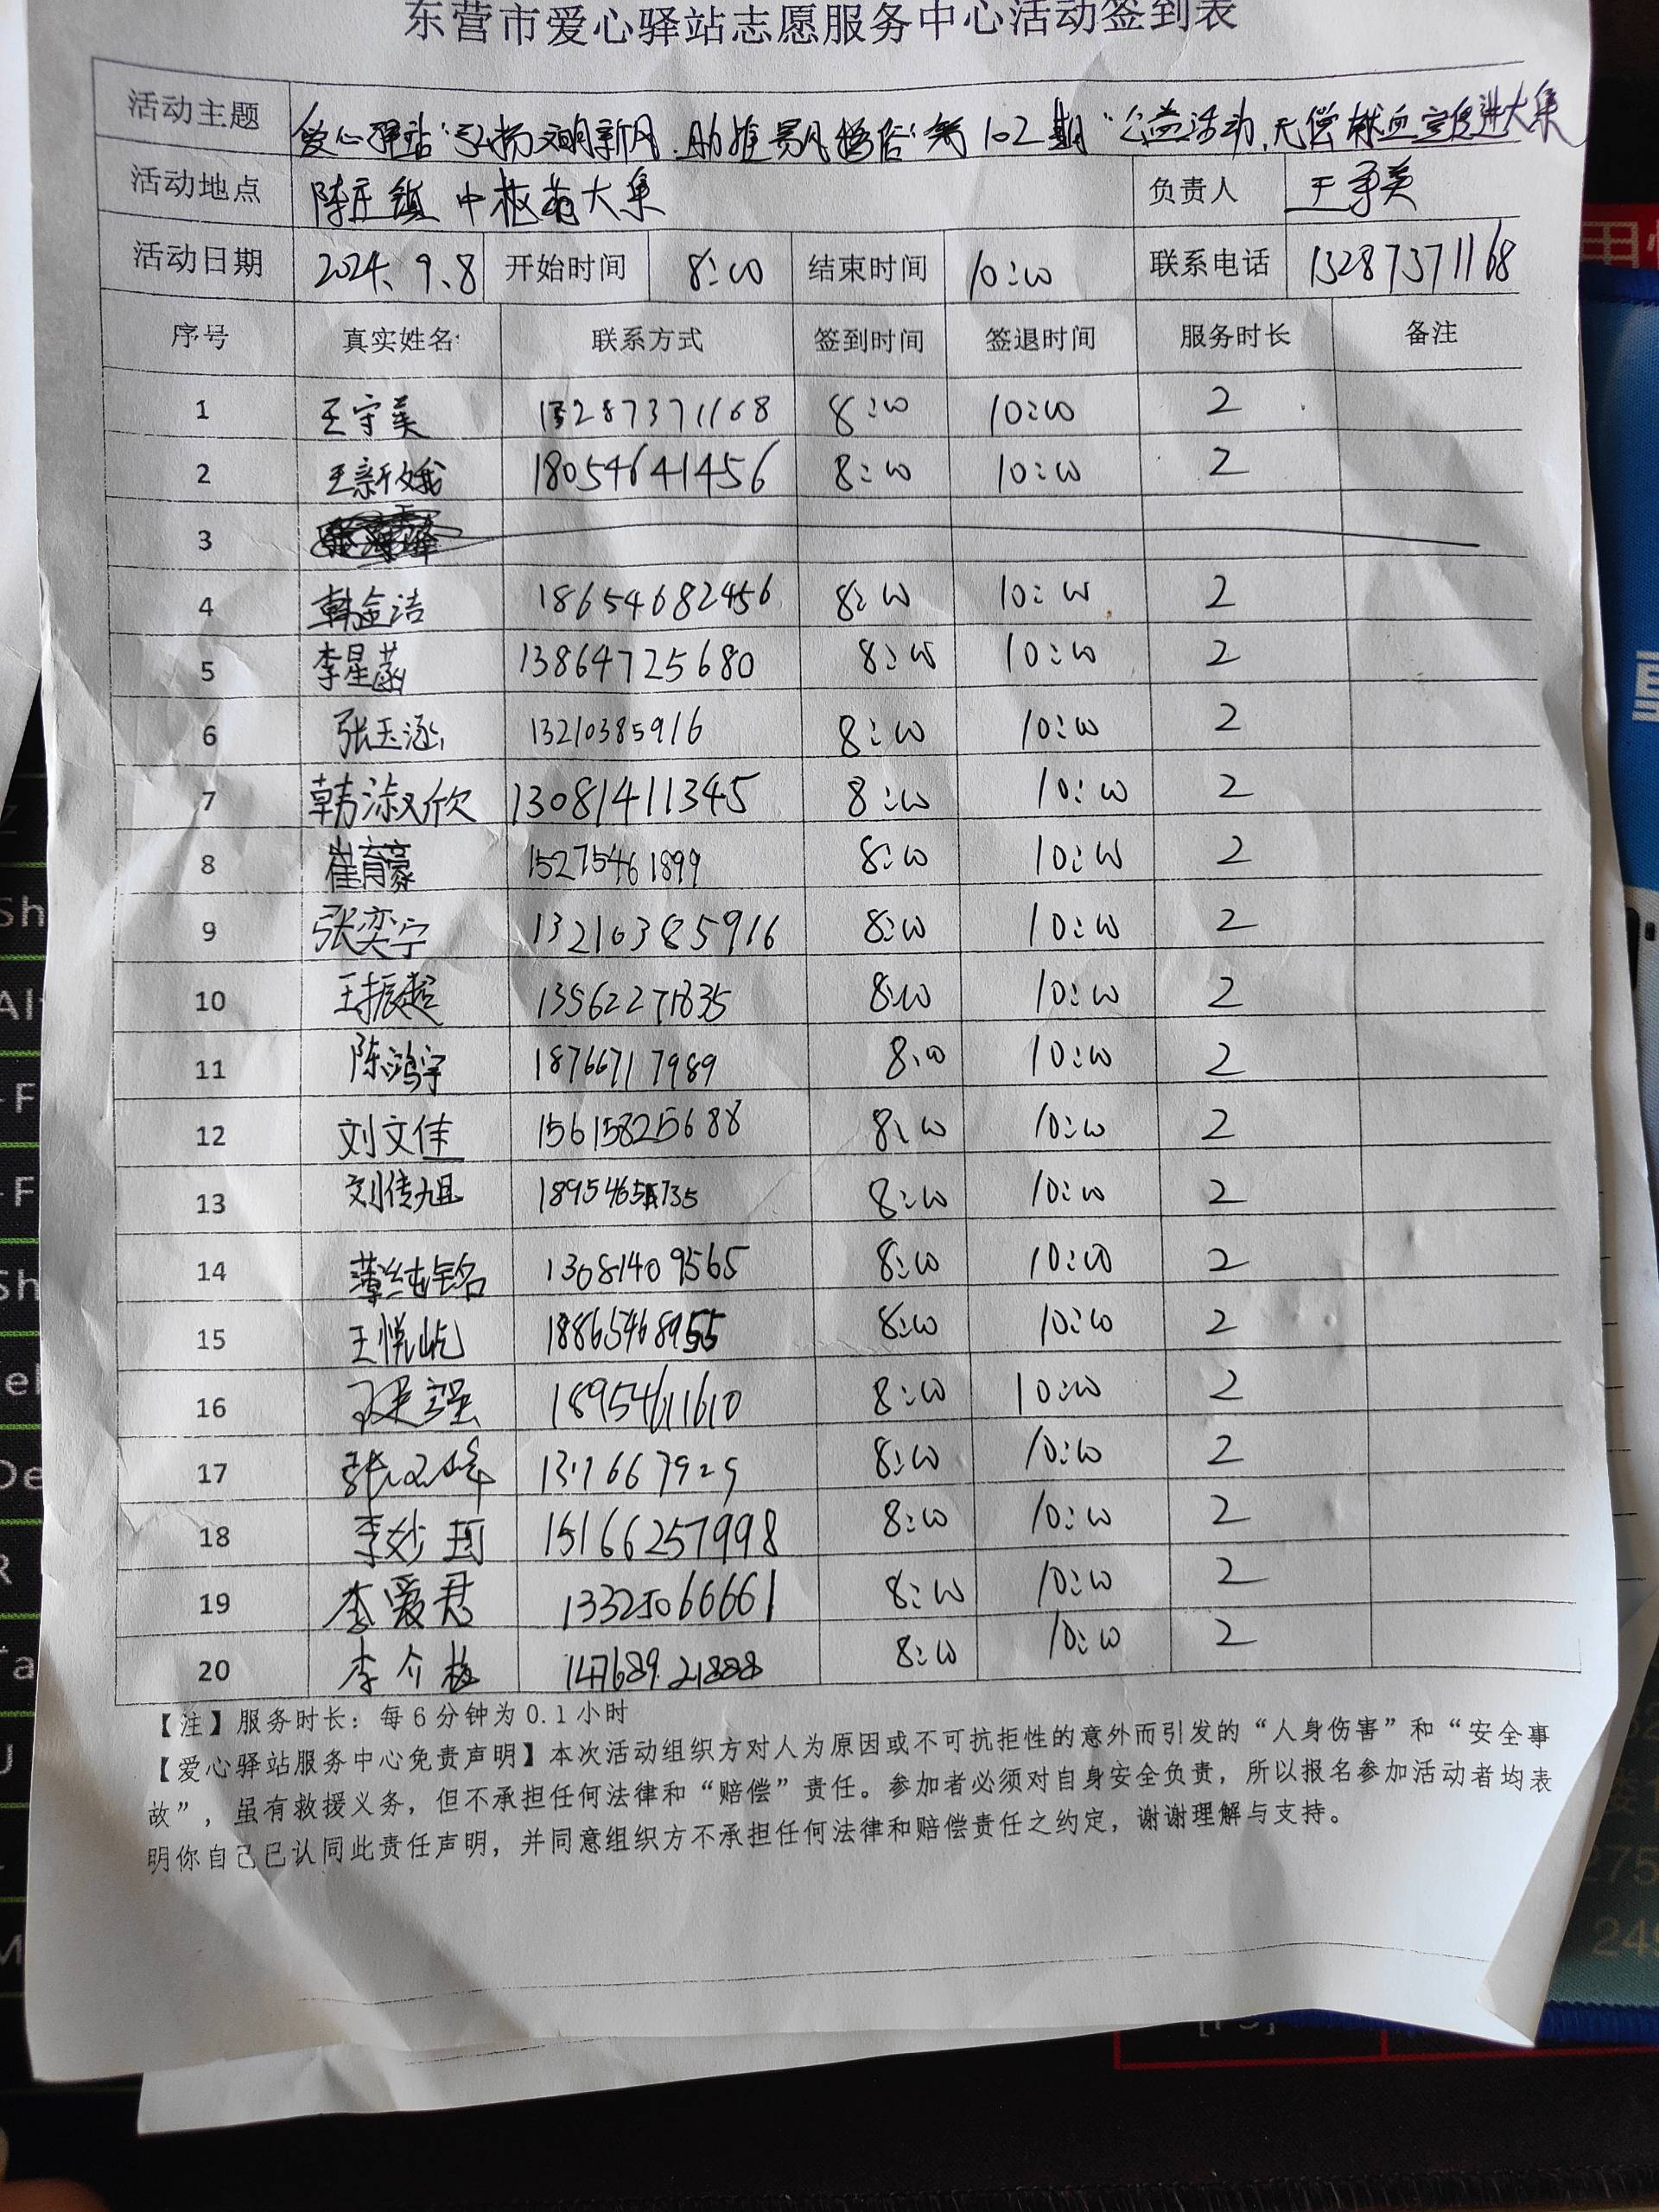 东营市爱心驿站志愿服务中心活动签到表
活动主题 爱心驿站“弘扬文明新风.助推易风移俗”第102期“公益活动.无偿献血宣传进大集
活动地点 陈庄镇中枢街大集 负责人 王守美
活动日期 2024.9.8 开始时间 8:00 结束时间 10:00 联系电话 13287371168
序号 真实姓名 联系方式 签到时间 签退时间 服务时长 备注
1 王守美 13287371168 8:00 10:00 2
2 王新娥 18054641456 8:00 10:00 2
3
4 韩金洁 18654682456 8:00 10:00 2
5 李星菡 13864725680 8:00 10:00 2
6 张玉涵 13210385916 8:00 10:00 2
7 韩淑欣 13081411345 8:00 10:00 2
8 崔育豪 15275461899 8:00 10:00 2
9 张奕宁 13210385916 8:00 10:00 2
10 王振超 13562271835 8:00 10:00 2
11 陈鸿宇 18766717989 8:00 10:00 2
12 刘文佳 15615825688 8:00 10:00 2
13 刘传旭 8:00 10:00 2
14 薄纯铭 13081409565 8:00 10:00 2
15 王悦屹 18865468955 8:00 10:00 2
16 18954611610 8:00 10:00 2
17 8:00 10:00 2
18 李妙珂 15166257998 8:00 10:00 2
19 李爱君 13325066661 8:00 10:00 2
20 李介梅 14768921888 8:00 10:00 2
【注】服务时长：每6分钟为0.1小时
【爱心驿站服务中心免责声明】本次活动组织方对人为原因或不可抗拒性的意外而引发的“人身伤害”和“安全事
故”，虽有救援义务，但不承担任何法律和“赔偿”责任。参加者必须对自身安全负责，所以报名参加活动者均表
明你自己已认同此责任声明，并同意组织方不承担任何法律和赔偿责任之约定，谢谢理解与支持。